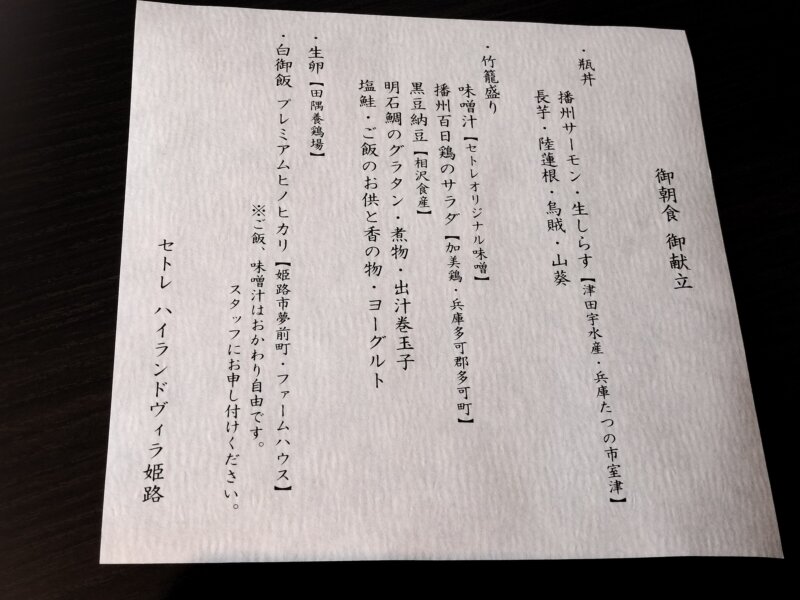 御朝食 御献立
・瓶丼
播州サーモン・生しらす【津田宇水産・兵庫たつの市室津】
長芋・陸蓮根・烏賊・山葵
・竹籠盛り
味噌汁【セトレオリジナル味噌】
播州百日鶏のサラダ【加美鶏・兵庫多可郡多可町】
黒豆納豆【相沢食産】
明石鯛のグラタン・煮物・出汁巻玉子
塩鮭・ご飯のお供と香の物・ヨーグルト
・生卵【田隅養鶏場】
・白御飯 プレミアムヒノヒカリ【姫路市夢前町・ファームハウス】
※ご飯、味噌汁はおかわり自由です。
スタッフにお申し付けください。
セトレ ハイランドヴィラ姫路